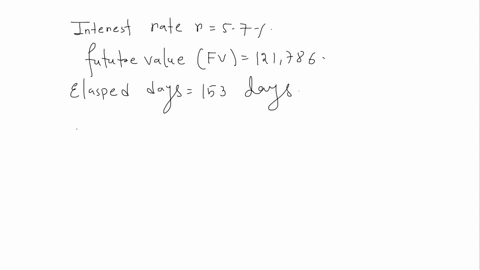 Interest rate r = 5.7%.
future value (FV) = 121,786.
Elasped days = 153 days.